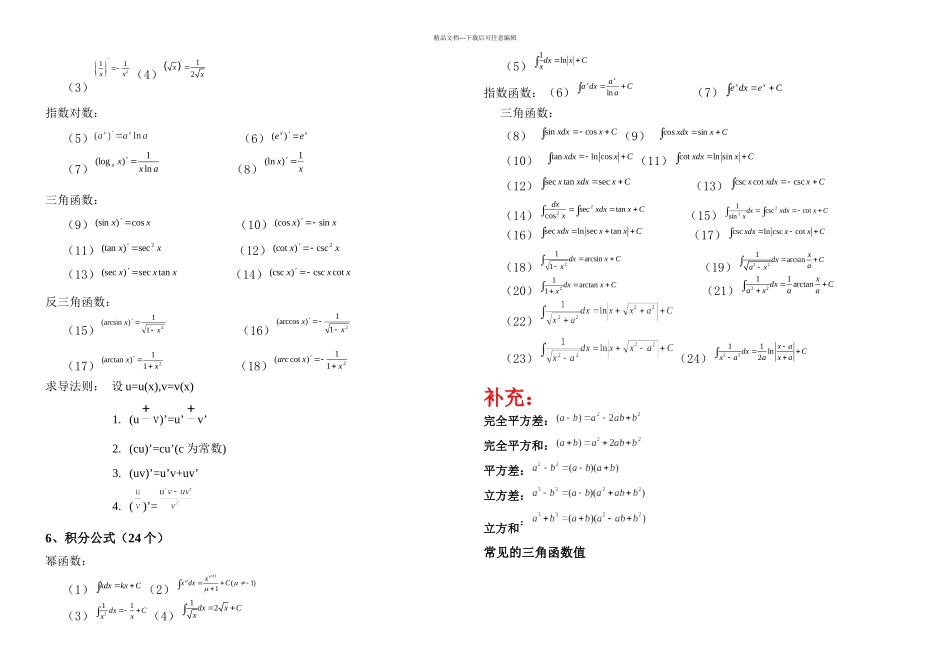 精品文档---下载后可任意编辑
（3）(1/x)′=−1/x²（4）(√x)′=1/(2√x)
指数对数：
（5）(aˣ)′=aˣ ln a （6）(eˣ)′=eˣ
（7）(logₐ x)′=1/(x ln a) （8）(ln x)′=1/x
三角函数：
（9）(sin x)′=cos x （10）(cos x)′=−sin x
（11）(tan x)′=sec² x （12）(cot x)′=−csc² x
（13）(sec x)′=sec x tan x （14）(csc x)′=−csc x cot x
反三角函数：
（15）(arcsin x)′=1/√(1−x²) （16）(arccos x)′=−1/√(1−x²)
（17）(arctan x)′=1/(1+x²) （18）(arc cot x)′=−1/(1+x²)
求导法则： 设 u=u(x),v=v(x)
1. (u±v)’=u’±v’
2. (cu)’=cu’(c 为常数)
3. (uv)’=u’v+uv’
4. (u/v)’=(u'v−uv')/v²
6、积分公式（24 个）
幂函数：
（1）∫kdx=kx+C（2）∫x^μ dx=x^(μ+1)/(μ+1)+C(μ≠−1)
（3）∫1/x² dx=−1/x+C（4）∫1/√x dx=2√x+C
（5）∫1/x dx=ln|x|+C
指数函数：（6）∫aˣdx=aˣ/ln a+C （7）∫eˣdx=eˣ+C
三角函数：
（8）∫sin xdx=−cos x+C（9）∫cos xdx=sin x+C
（10）∫tan xdx=−ln|cos x|+C（11）∫cot xdx=ln|sin x|+C
（12）∫sec x tan xdx=sec x+C （13）∫csc x cot xdx=−csc x+C
（14）∫dx/cos² x=∫sec² xdx=tan x+C （15）∫1/sin² x dx=∫csc² xdx=−cot x+C
（16）∫sec xdx=ln|sec x+tan x|+C （17）∫csc xdx=ln|csc x−cot x|+C
（18）∫1/√(1−x²) dx=arcsin x+C （19）∫1/√(a²−x²) dx=arcsin x/a+C
（20）∫1/(1+x²) dx=arctan x+C （21）∫1/(a²+x²) dx=1/a arctan x/a+C
（22）∫1/√(x²+a²) dx=ln|x+√(x²+a²)|+C
（23）∫1/√(x²−a²) dx=ln|x+√(x²−a²)|+C（24）∫1/(x²−a²) dx=1/(2a) ln|(x−a)/(x+a)|+C
补充：
完全平方差：(a−b)=a²−2ab+b²
完全平方和：(a+b)=a²+2ab+b²
平方差：a²−b²=(a−b)(a+b)
立方差：a³−b³=(a−b)(a²+ab+b²)
立方和：a³+b³=(a+b)(a²−ab+b²)
常见的三角函数值